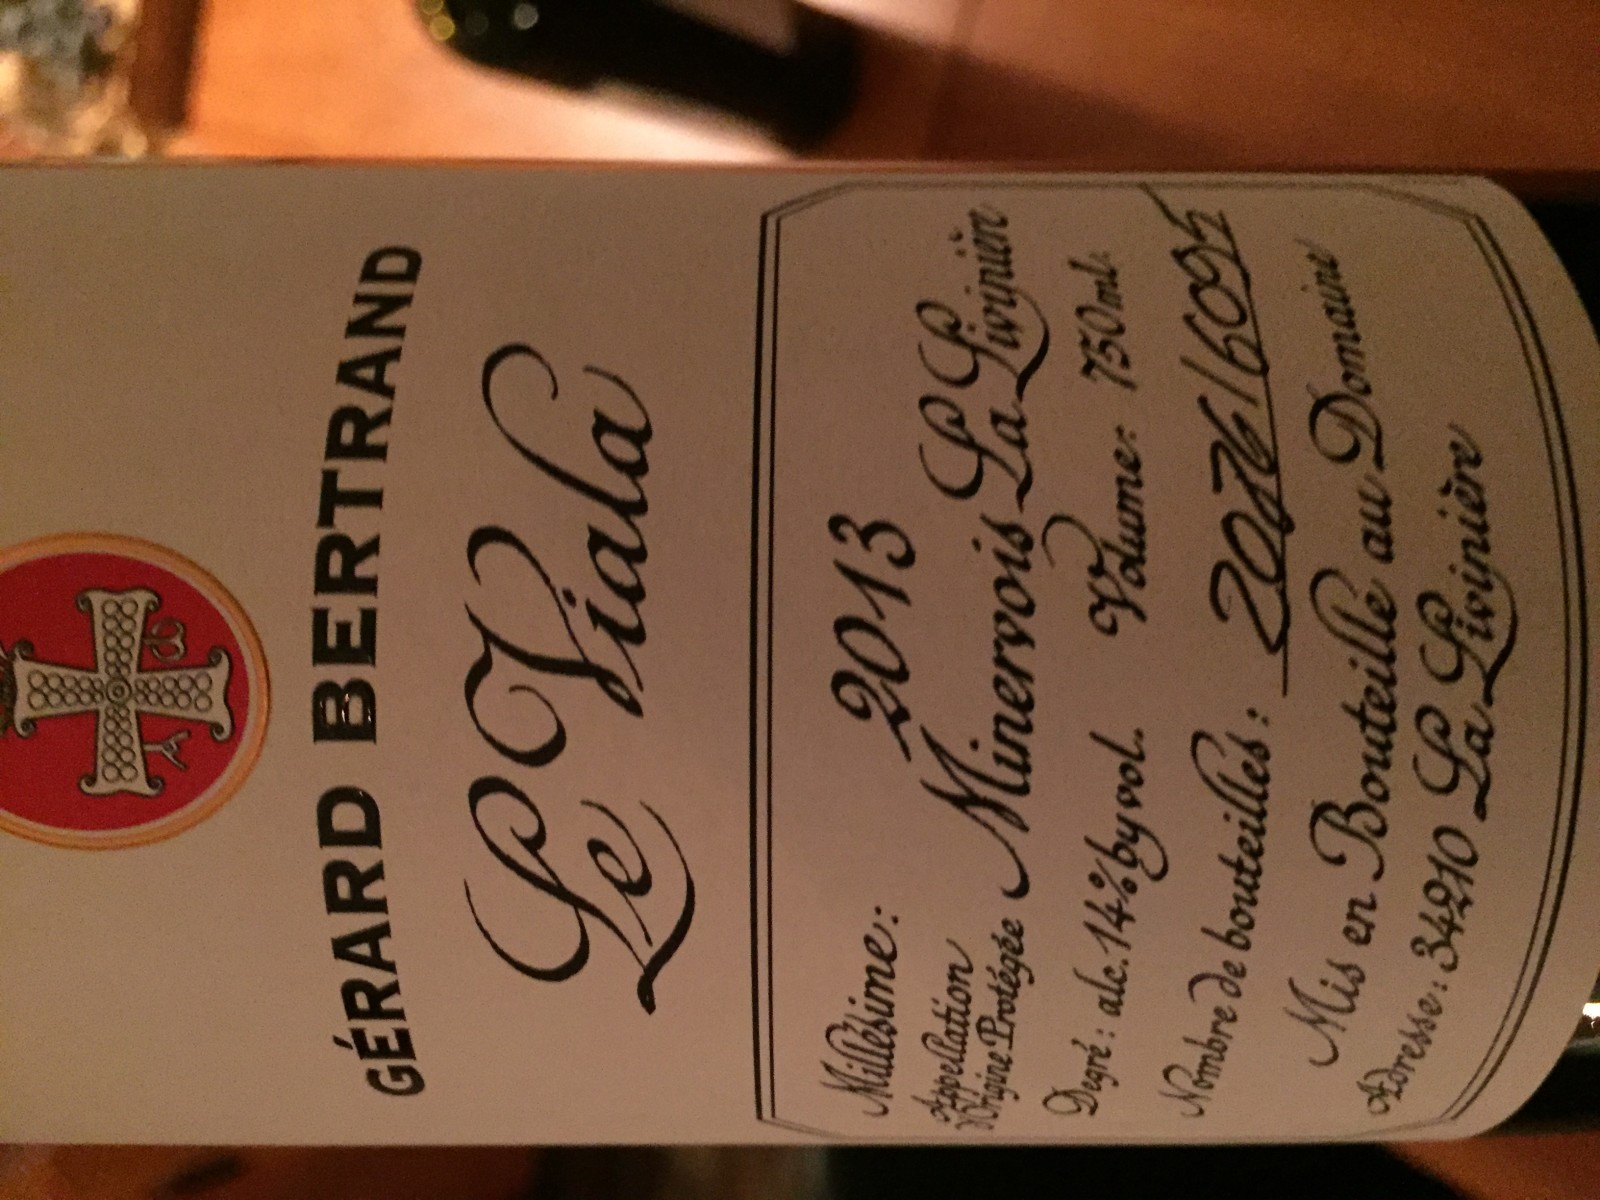 GÉRARD BERTRAND
Le Viala
Millésime: 2013
Appellation
d'Origine Protégée Minervois La Livinière
Degré: alc. 14% by vol. Volume: 750ml.
Nombre de bouteilles:
Mis en Bouteille au Domaine
Adresse: 34210 La Livinière